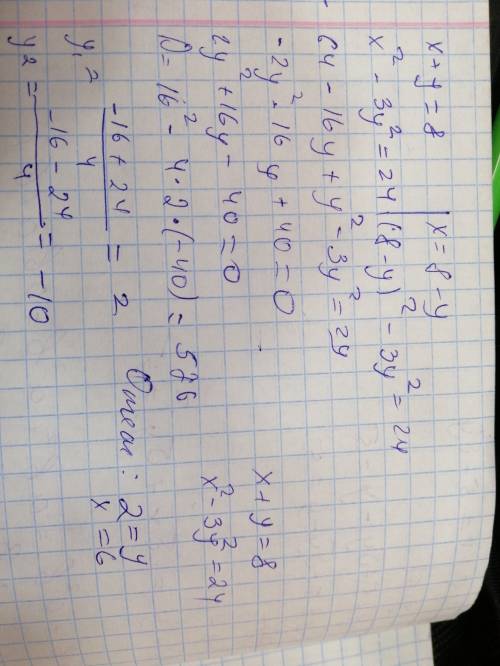 x+y=8 | x=8-y
x²-3y²=24 | (8-y)²-3y²=24
64-16y+y²-3y²=24
-2y²-16y+40=0
2y²+16y-40=0
D=16²-4·2·(-40)=576
y₁= (-16+24)/4 = 2
y₂= (-16-24)/4 = -10
x+y=8
x²-3y²=24
Ответ: 2=y
x=6